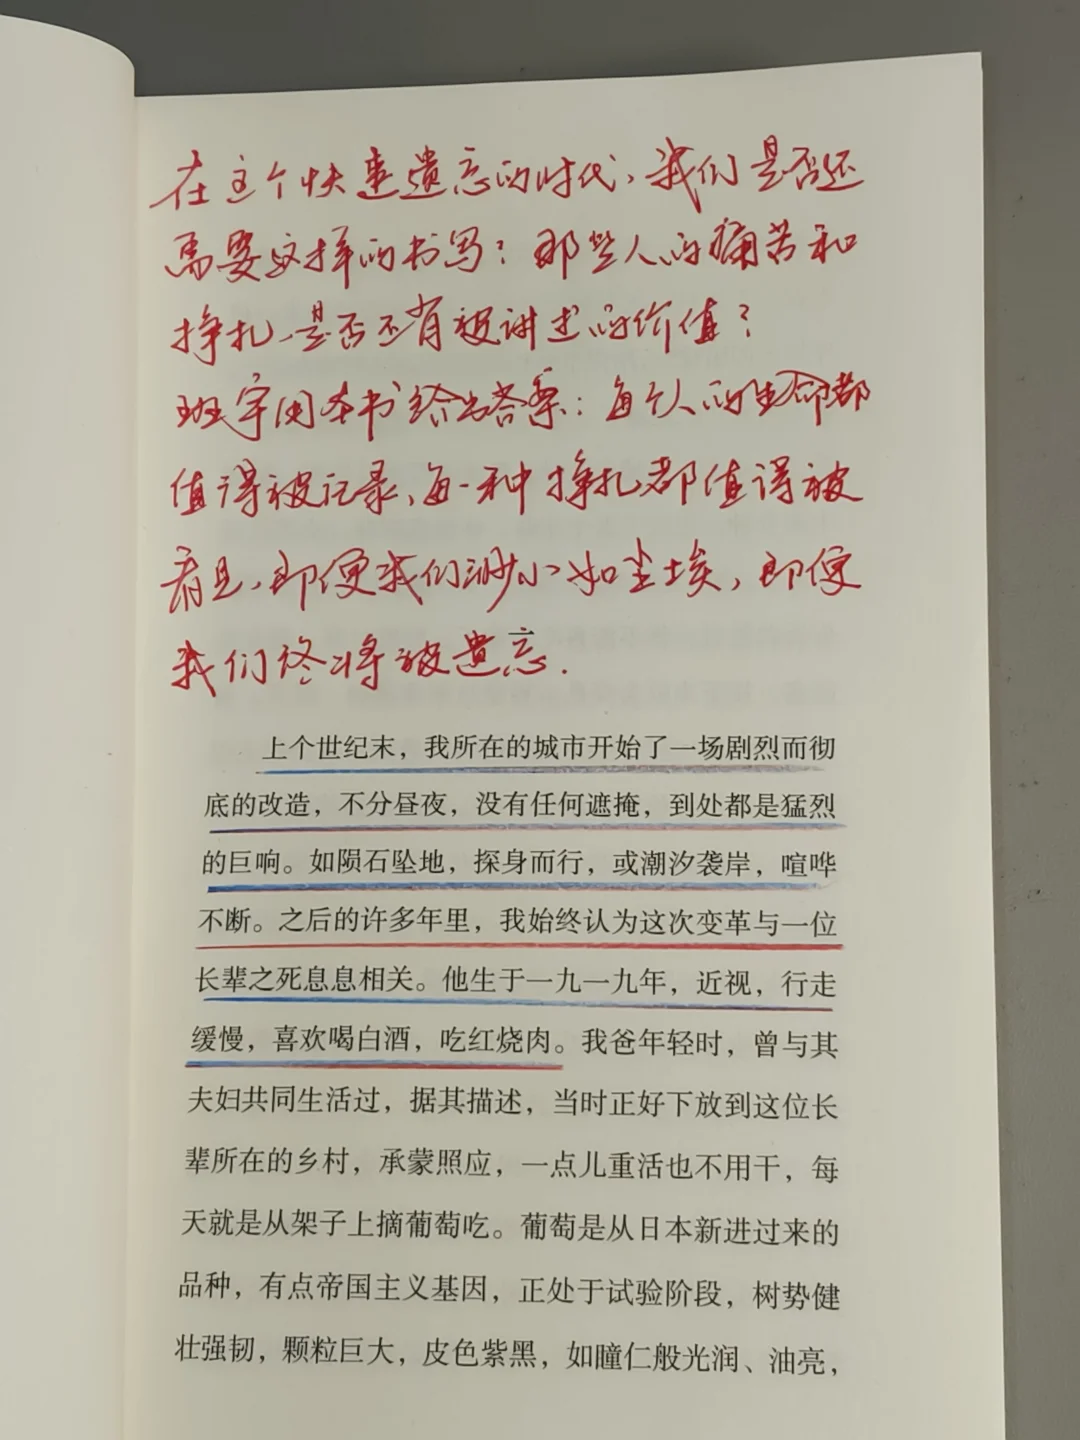 在这个快速遗忘的时代，我们是否还
需要这样的书写？那些人的痛苦和
挣扎，是否还有被讲述的价值？
班宇用本书给出答案：每个人的生命都
值得被记录，每一种挣扎都值得被
看见，即便我们渺小如尘埃，即便
我们终将被遗忘.
上个世纪末，我所在的城市开始了一场剧烈而彻
底的改造，不分昼夜，没有任何遮掩，到处都是猛烈
的巨响。如陨石坠地，探身而行，或潮汐袭岸，喧哗
不断。之后的许多年里，我始终认为这次变革与一位
长辈之死息息相关。他生于一九一九年，近视，行走
缓慢，喜欢喝白酒，吃红烧肉。我爸年轻时，曾与其
夫妇共同生活过，据其描述，当时正好下放到这位长
辈所在的乡村，承蒙照应，一点儿重活也不用干，每
天就是从架子上摘葡萄吃。葡萄是从日本新进过来的
品种，有点帝国主义基因，正处于试验阶段，树势健
壮强韧，颗粒巨大，皮色紫黑，如瞳仁般光润、油亮，